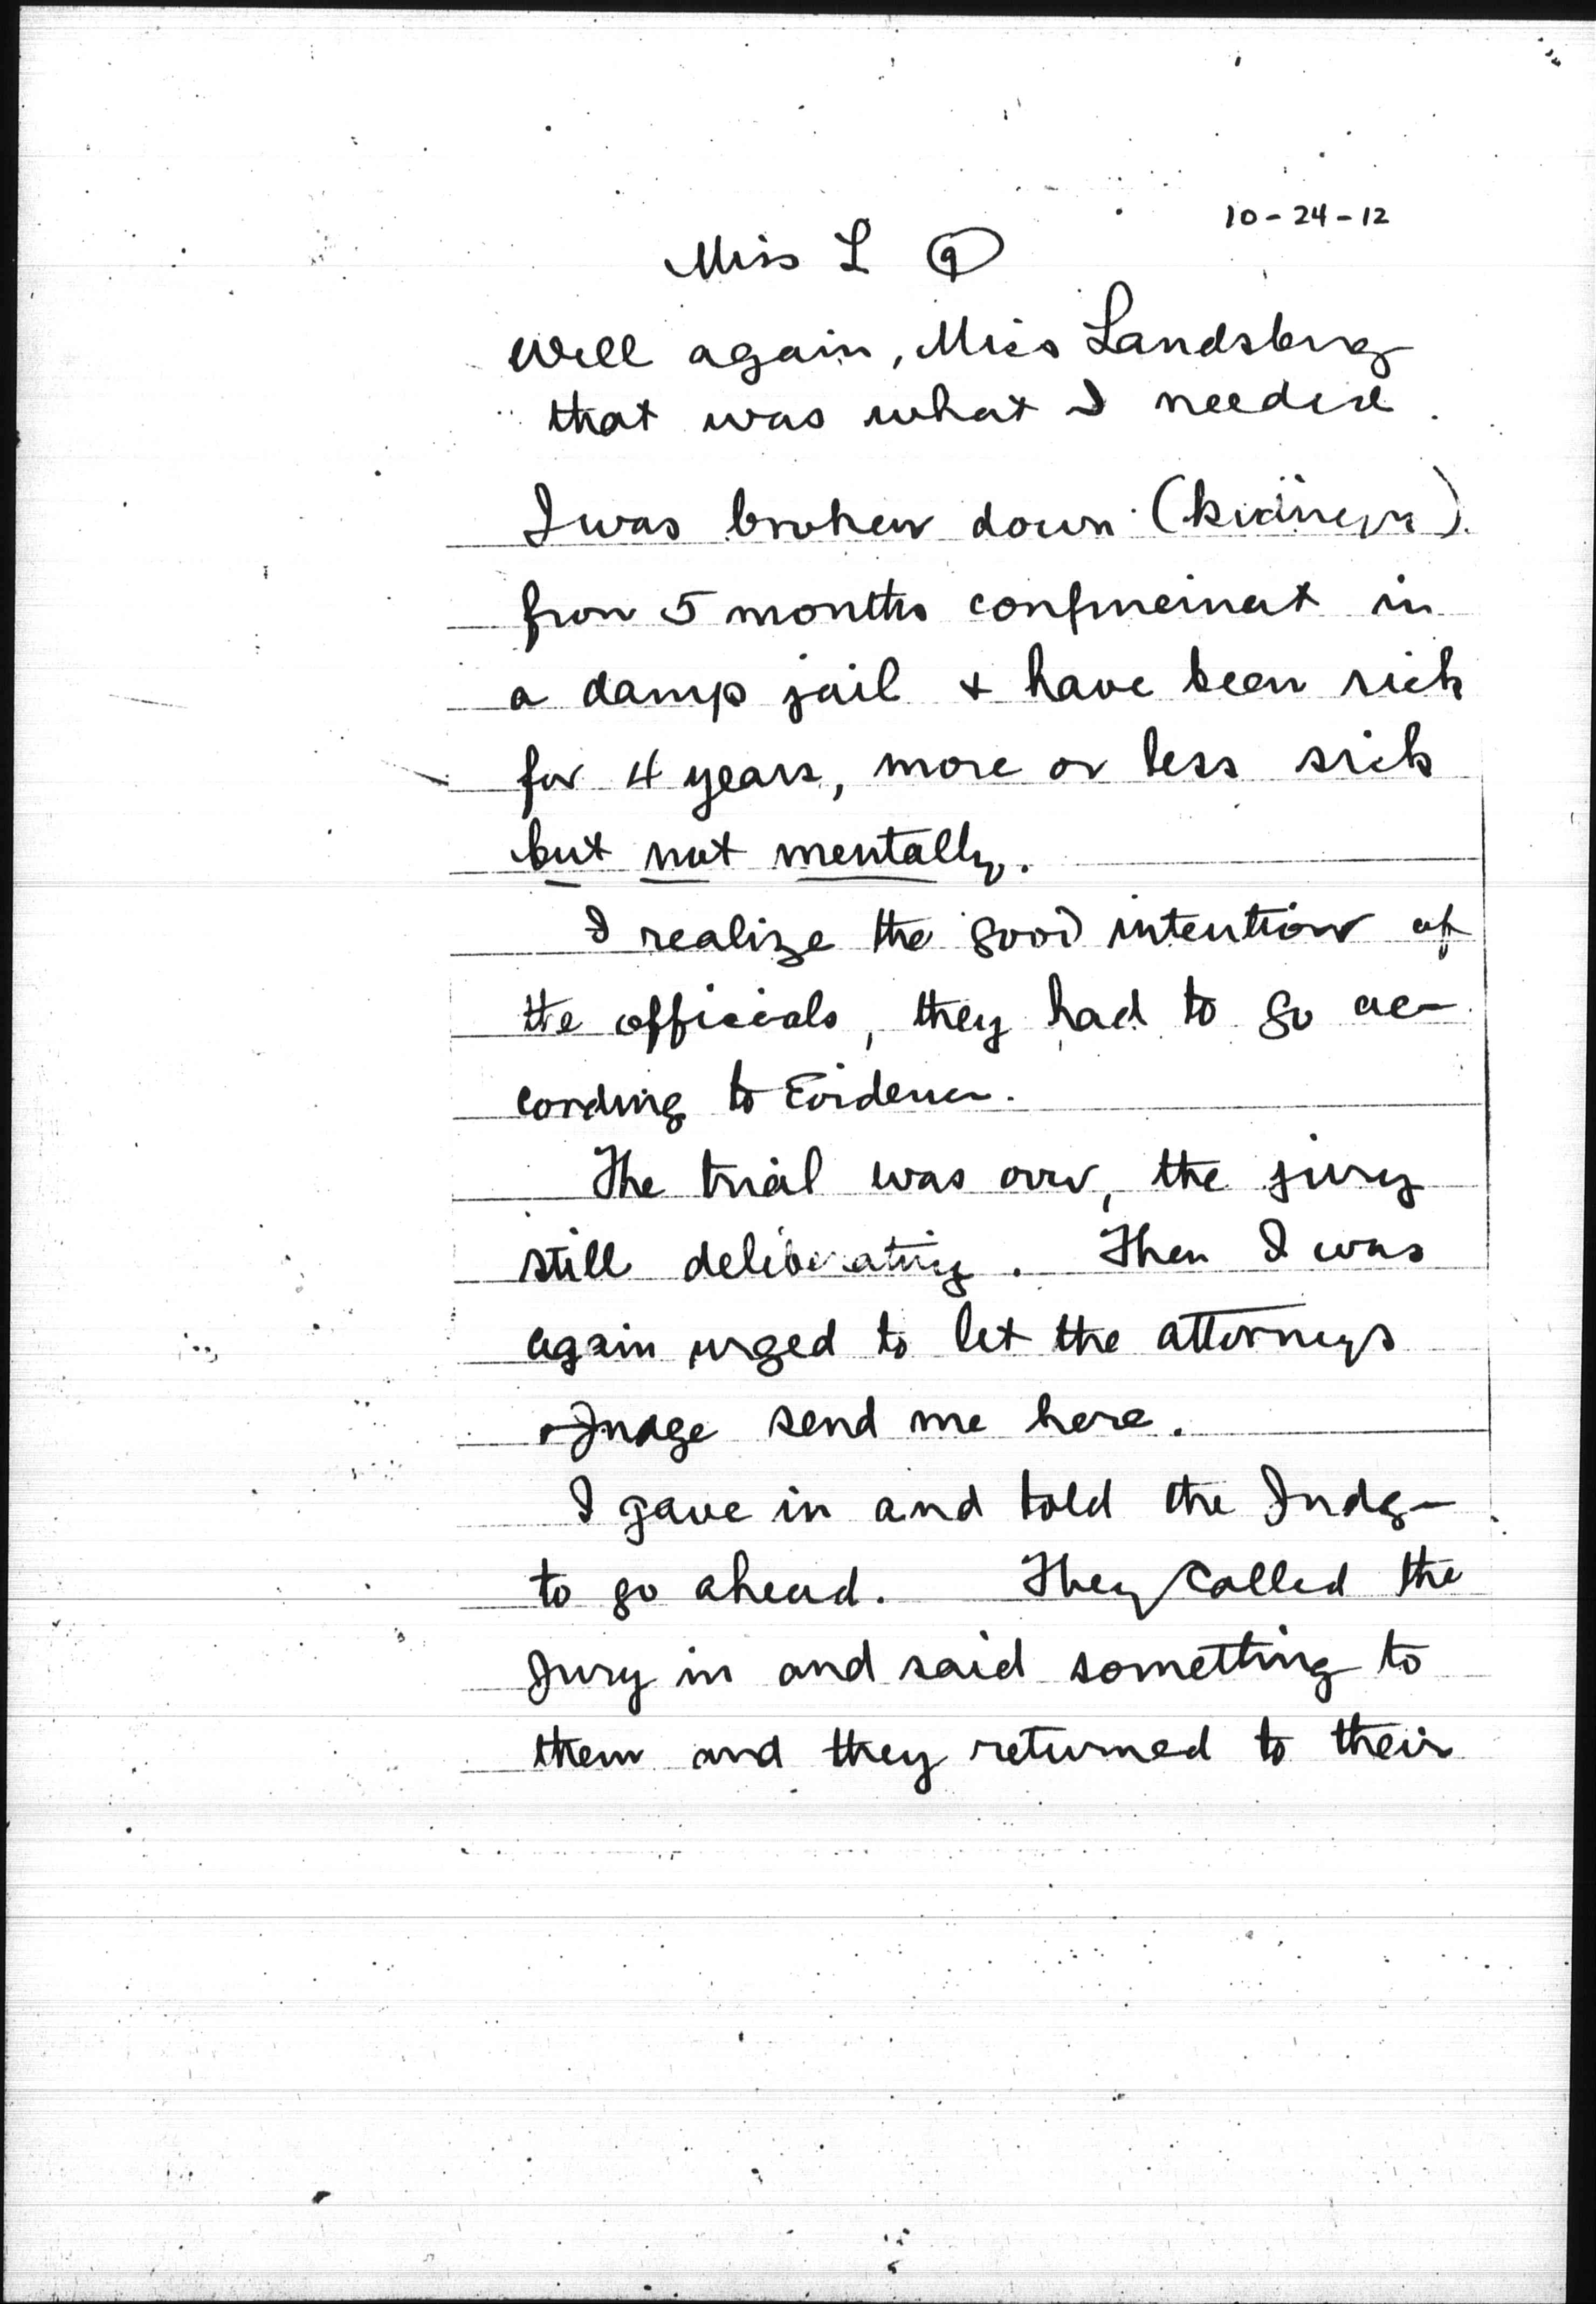 10-24-12
Miss L 9
Well again, Miss Landsberg
that was what I needed.
I was broken down (kidneys)
from 5 months confinement in
a damp jail & have been sick
for 4 years, more or less sick
but not mentally.
I realize the good intention of
the officials, they had to go ac-
cording to Evidence.
The trial was over, the jury
still deliberating. Then I was
again urged to let the attorneys
+ Judge send me here.
I gave in and told the Judge
to go ahead. They called the
Jury in and said something to
them and they returned to their